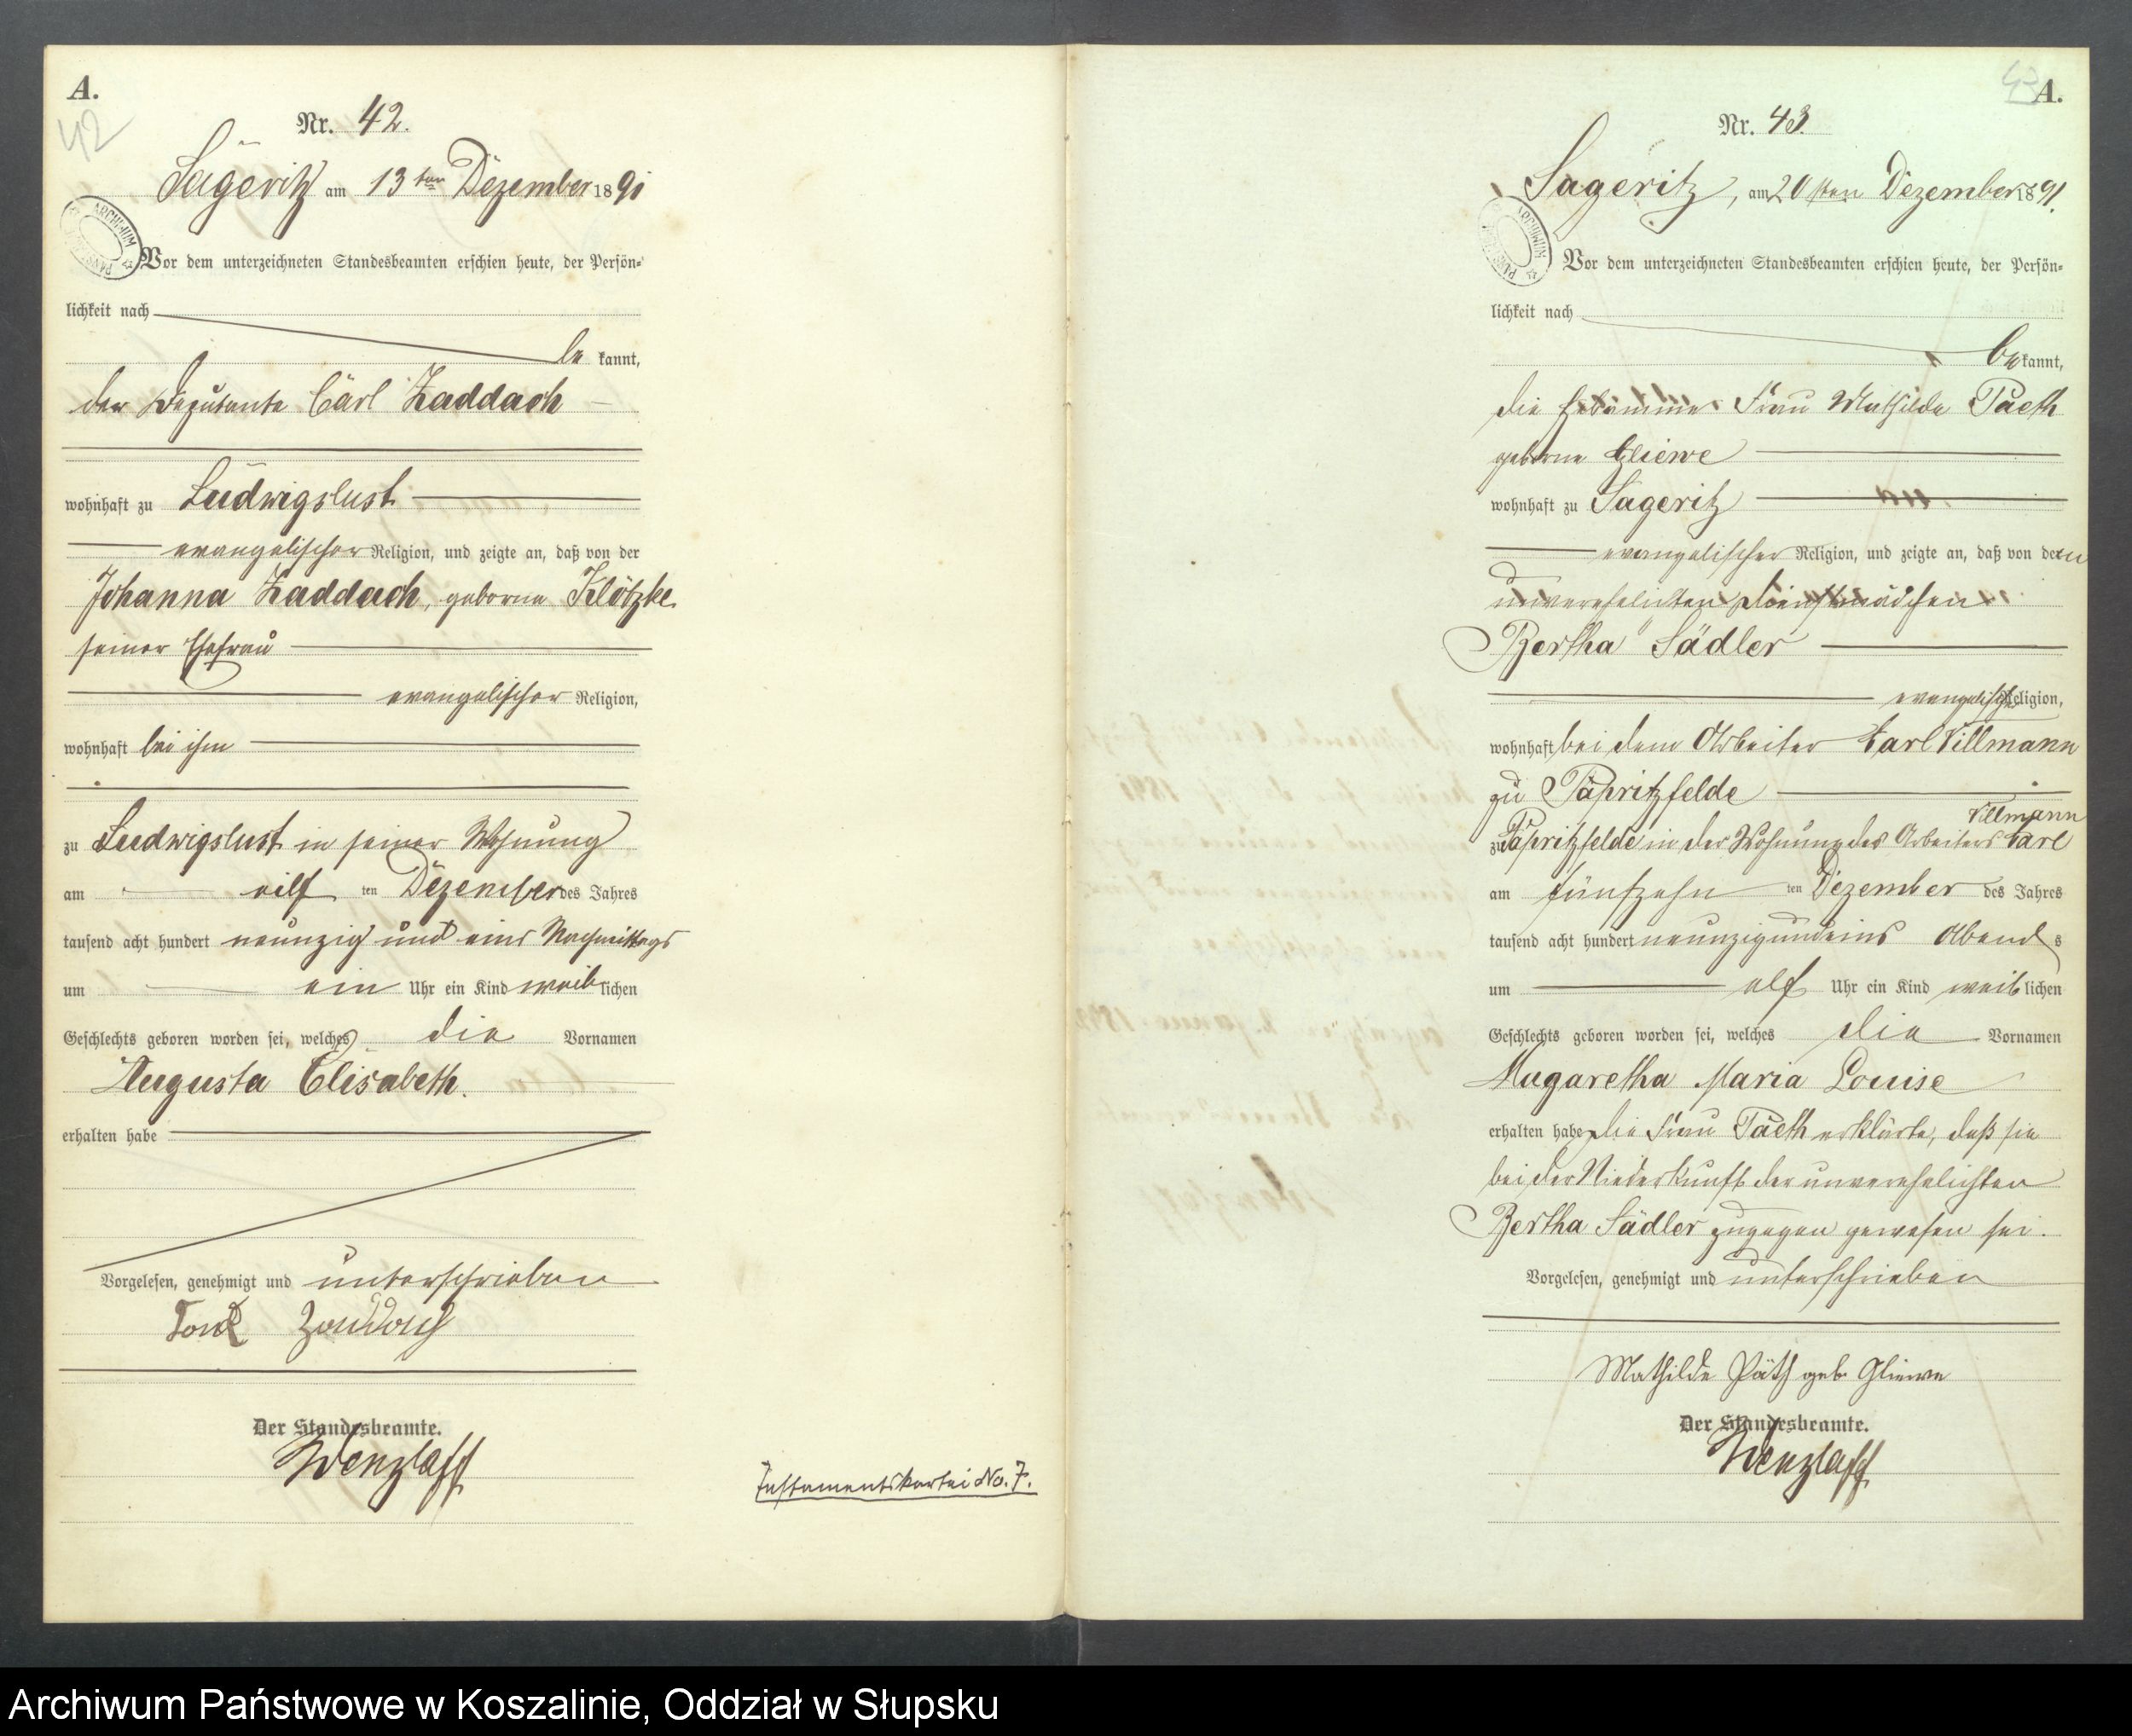 A.
42
Nr. 42.
Sageritz am 13ten Dezember 1891
Vor dem unterzeichneten Standesbeamten erschien heute, der Persön-
lichkeit nach
bekannt,
der Deputante Carl Zaddach
wohnhaft zu Ludwigslust
evangelischer Religion, und zeigte an, daß von der
Johanna Zaddach, geborne Klötzke
seiner Ehefrau
evangelischer Religion,
wohnhaft bei ihm
zu Ludwigslust in seiner Wohnung
am eilf ten Dezember des Jahres
tausend acht hundert neunzig und eins Nachmittags
um ein Uhr ein Kind weiblichen
Geschlechts geboren worden sei, welches die Vornamen
Augusta Elisabeth.
erhalten habe
Vorgelesen, genehmigt und unterschrieben
Zaddach
Der Standesbeamte.
Wenzlaff
Testamentskartei No. 7.
43
A.
Nr. 43.
Sageritz, am 20sten Dezember 1891.
Vor dem unterzeichneten Standesbeamten erschien heute, der Persön-
lichkeit nach
bekannt,
die Hebamme Frau Mathilde Paeth
geborne Gliewe
wohnhaft zu Sageritz
evangelischer Religion, und zeigte an, daß von der
unverehelichten Dienstmädchen
Bertha Sädler
evangelischer Religion,
wohnhaft bei dem Arbeiter Karl Villmann
zu Papritzfelde
Villmann
zu Papritzfelde in der Wohnung des Arbeiters Karl
am fünfzehn ten Dezember des Jahres
tausend acht hundert neunzigundeins Abends
um elf Uhr ein Kind weiblichen
Geschlechts geboren worden sei, welches die Vornamen
Magaretha Maria Louise
erhalten habe, die Frau Paeth erklärte, daß sie
bei der Niederkunft der unverehelichten
Bertha Sädler zugegen gewesen sei.
Vorgelesen, genehmigt und unterschrieben
Mathilde Päth geb. Gliewe
Der Standesbeamte.
Wenzlaff
Archiwum Państwowe w Koszalinie, Oddział w Słupsku